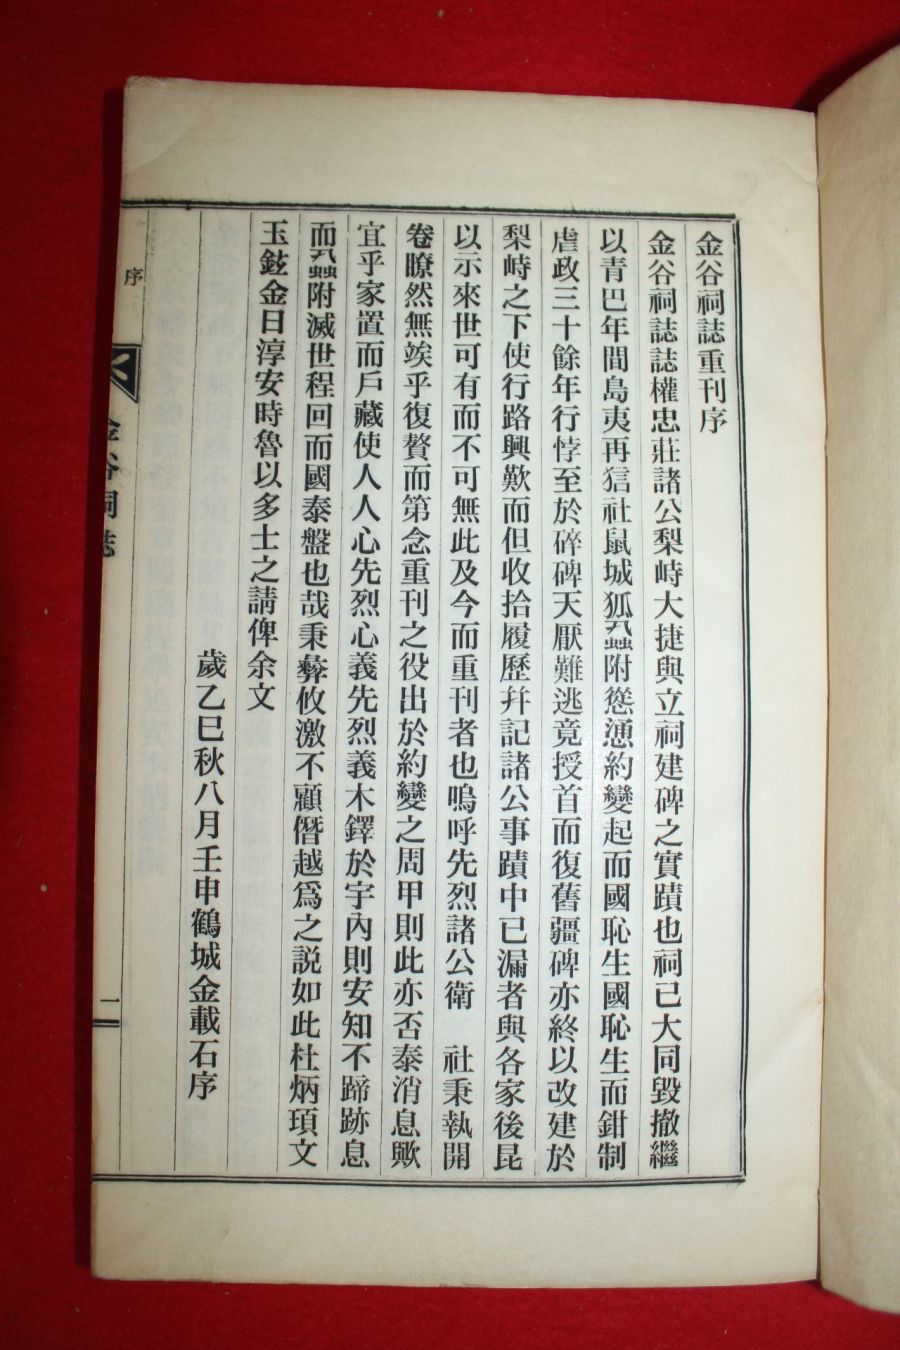 金谷祠誌重刊序
金谷祠誌誌權忠莊諸公梨峙大捷與立祠建碑之實蹟也祠已大同毀撤繼
以青巴年間島夷再猘社鼠城狐蝨附慫慂約變起而國恥生國恥生而鉗制
虐政三十餘年行悖至於碎碑天厭難逃竟授首而復舊疆碑亦終以改建於
梨峙之下使行路興歎而但收拾履歷幷記諸公事蹟中已漏者與各家後昆
以示來世可有而不可無此及今而重刊者也嗚呼先烈諸公衛 社秉執開
卷瞭然無竢乎復贅而第念重刊之役出於約變之周甲則此亦否泰消息歟
宜乎家置而戶藏使人人心先烈心義先烈義木鐸於宇內則安知不蹄跡息
而蝨附滅世程回而國泰盤也哉秉彜攸激不顧僭越爲之説如此杜炳頊文
玉鉉金日淳安時魯以多士之請俾余文
歲乙巳秋八月壬申鶴城金載石序
序
金谷祠誌
二